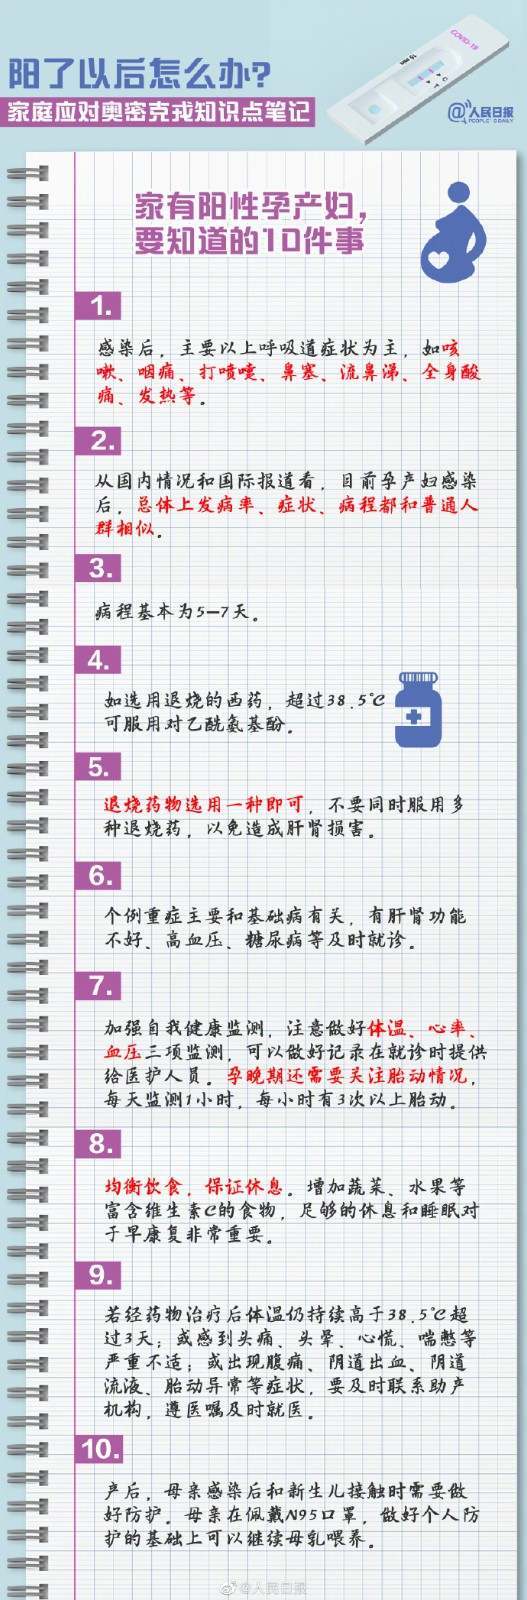 阳了以后怎么办?
家庭应对奥密克戎知识点笔记
COVID-19
15 min
C
T
A
@人民日报
PEOPLE'S DAILY
家有阳性孕产妇,
要知道的10件事
1.
感染后，主要以上呼吸道症状为主，如咳
嗽、咽痛、打喷嚏、鼻塞、流鼻涕、全身酸
痛、发热等。
2.
从国内情况和国际报道看，目前孕产妇感染
后，总体上发病率、症状、病程都和普通人
群相似。
3.
病程基本为5—7天。
4.
如选用退烧的西药，超过38.5℃
可服用对乙酰氨基酚。
5.
退烧药物选用一种即可，不要同时服用多
种退烧药，以免造成肝肾损害。
6.
个例重症主要和基础病有关，有肝肾功能
不好、高血压、糖尿病等及时就诊。
7.
加强自我健康监测，注意做好体温、心率、
血压三项监测，可以做好记录在就诊时提供
给医护人员。孕晚期还需要关注胎动情况，
每天监测1小时，每小时有3次以上胎动。
8.
均衡饮食，保证休息。增加蔬菜、水果等
富含维生素C的食物，足够的休息和睡眠对
于早康复非常重要。
9.
若经药物治疗后体温仍持续高于38.5℃超
过3天；或感到头痛、头晕、心慌、喘憋等
严重不适；或出现腹痛、阴道出血、阴道
流液、胎动异常等症状，要及时联系助产
机构，遵医嘱及时就医。
10.
产后，母亲感染后和新生儿接触时需要做
好防护。母亲在佩戴N95口罩，做好个人防
护的基础上可以继续母乳喂养。
@人民日报